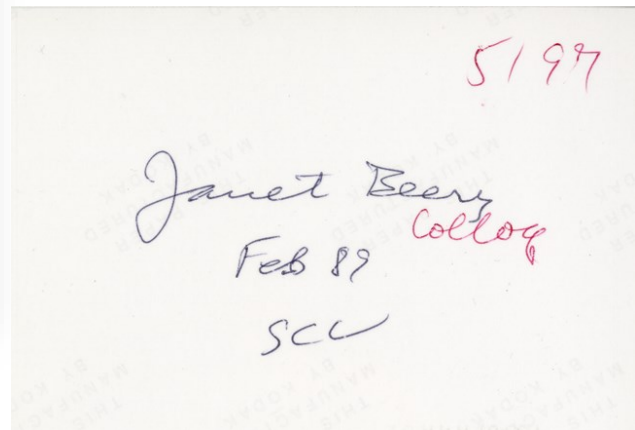 5/97
Janet Beery
Colloq
Feb 89
SCU